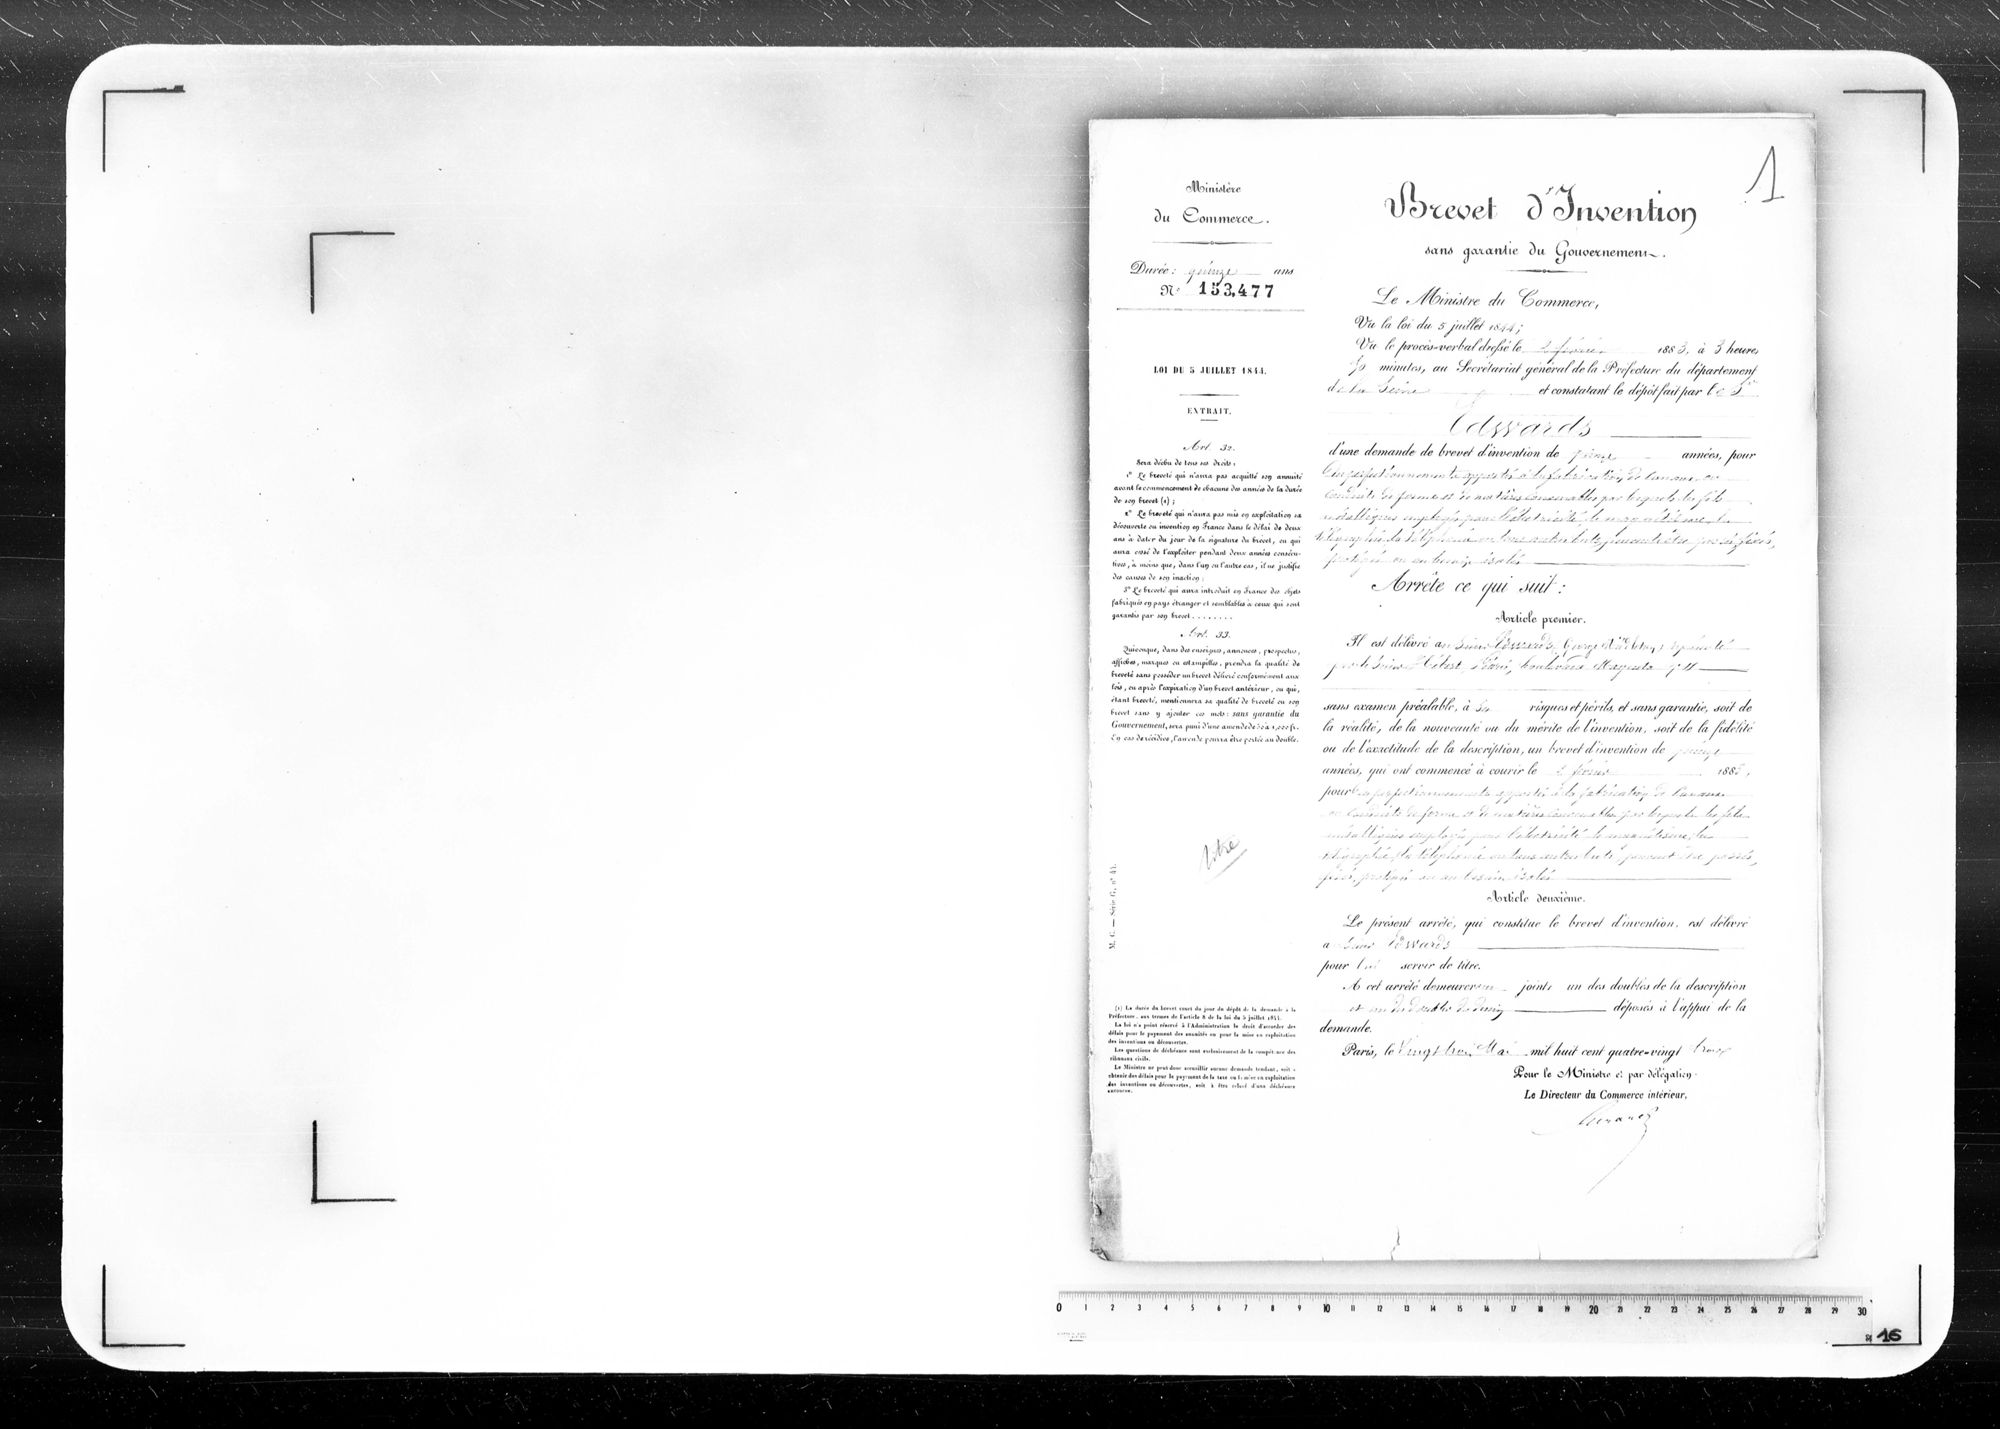 1
Ministère
du Commerce.
Durée: quinze ans
N° 153,477
LOI DU 5 JUILLET 1844.
EXTRAIT.
Art. 32.
Sera déchu de tous ses droits:
1° Le breveté qui n'aura pas acquitté son annuité
avant le commencement de chacune des années de la durée
de son brevet (1);
2° Le breveté qui n'aura pas mis en exploitation sa
découverte ou invention en France dans le délai de deux
ans à dater du jour de la signature du brevet, ou qui
aura cessé de l'exploiter pendant deux années consécu-
tives, à moins que, dans l'un ou l'autre cas, il ne justifie
des causes de son inaction;
3° Le breveté qui aura introduit en France des objets
fabriqués en pays étranger et semblables à ceux qui sont
garantis par son brevet........
Art. 33.
Quiconque, dans des enseignes, annonces, prospectus,
affiches, marques ou estampilles, prendra la qualité de
breveté sans posséder un brevet délivré conformément aux
lois, ou après l'expiration d'un brevet antérieur, ou qui,
étant breveté, mentionnera sa qualité de breveté ou son
brevet sans y ajouter ces mots: sans garantie du
Gouvernement, sera puni d'une amende de 50 à 1,000 fr.
En cas de récidive, l'amende pourra être portée au double.
titre
M. C. — Série G, n° 41.
(1) La durée du brevet court du jour du dépôt de la demande à la
Préfecture, aux termes de l'article 8 de la loi du 5 juillet 1844.
La loi n'a point réservé à l'Administration le droit d'accorder des
délais pour le payement des annuités ou pour la mise en exploitation
des inventions ou découvertes.
Les questions de déchéance sont exclusivement de la compétence des
tribunaux civils.
Le Ministre ne peut donc accueillir aucune demande tendant, soit à
obtenir des délais pour le payement de la taxe ou la mise en exploitation
des inventions ou découvertes, soit à être relevé d'une déchéance
encourue.
Brevet d'Invention
sans garantie du Gouvernement.
Le Ministre du Commerce,
Vu la loi du 5 juillet 1844;
Vu le procès-verbal dressé le 2 février 1883, à 3 heures
minutes, au Secrétariat général de la Préfecture du département
de la Seine et constatant le dépôt fait par le Sr
Edwards
d'une demande de brevet d'invention de quinze années, pour
des perfectionnements apportés à la fabrication de canaux ou
conduits de formes et de matières convenables par lesquels les fils
métalliques employés pour l'électricité, le magnétisme, la
télégraphie, la téléphonie ou tous autres buts, peuvent être posés, fixés,
protégés ou au besoin isolés
Arrête ce qui suit:
Article premier.
Il est délivré au Sieur Edwards, représenté
par le Sieur boulevard Magenta
sans examen préalable, à ses risques et périls, et sans garantie, soit de
la réalité, de la nouveauté ou du mérite de l'invention, soit de la fidélité
ou de l'exactitude de la description, un brevet d'invention de quinze
années, qui ont commencé à courir le 2 février 1883,
pour des perfectionnements apportés à la fabrication de canaux
ou conduits de forme et de matières convenables par lesquels les fils
métalliques employés pour l'électricité, le magnétisme, la
télégraphie, la téléphonie ou tous autres buts peuvent être posés,
fixés, protégés ou au besoin isolés
Article deuxième.
Le présent arrêté, qui constitue le brevet d'invention, est délivré
au Sieur Edwards
pour lui servir de titre.
A cet arrêté demeureront joints un des doubles de la description
et un des doubles du dessin déposés à l'appui de la
demande.
Paris, le Vingt trois Mai mil huit cent quatre-vingt trois
Pour le Ministre et par délégation.
Le Directeur du Commerce intérieur,
0 1 2 3 4 5 6 7 8 9 10 11 12 13 14 15 16 17 18 19 20 21 22 23 24 25 26 27 28 29 30
16